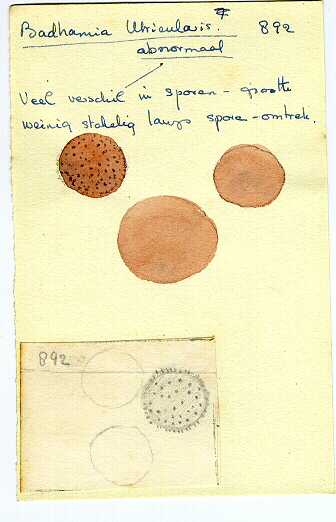 Badhamia Utricularis. 892
abnormaal
Veel verschil in sporen - grootte
weinig stekelig langs spore - omtrek.
892